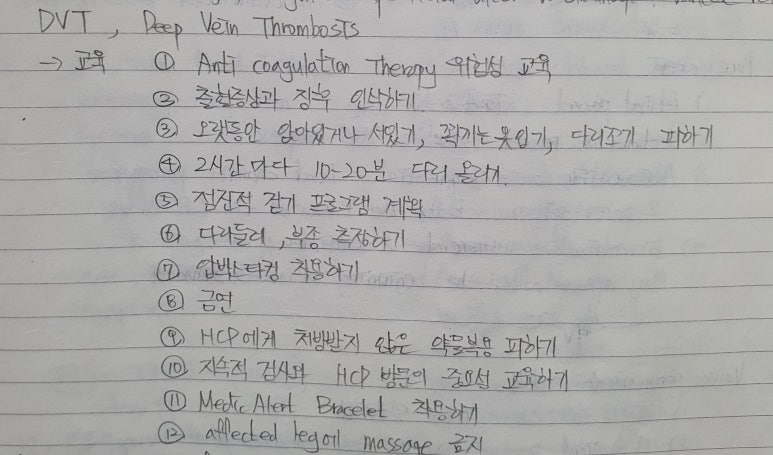 DVT, Deep Vein Thrombosts
→ 교육 ① Anti coagulation Therapy 위험성 교육
② 출혈증상과 징후 인식하기
③ 오랫동안 앉아있거나 서있기, 꽉끼는옷입기, 다리꼬기 피하기
④ 2시간 마다 10-20분 다리 올리기.
⑤ 점진적 걷기 프로그램 계획
⑥ 다리둘레, 부종 측정하기
⑦ 압박스타킹 착용하기
⑧ 금연
⑨ HCP에게 처방받지 않은 약물복용 피하기
⑩ 지속적 검사와 HCP 방문의 중요성 교육하기
⑪ Medic Alert Bracelet 착용하기
⑫ affected leg에 massage 금지